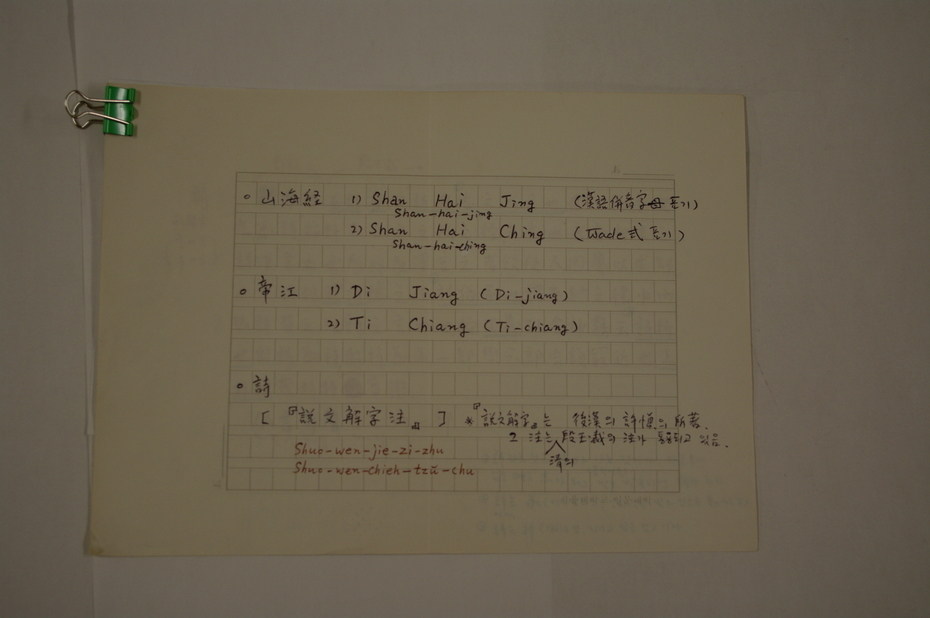 ○ 山海経 1) Shan Hai Jing (漢語倂音字母 표기)
Shan-hai-jing
2) Shan Hai Ching (Wade式 표기)
Shan-hai-ching
○ 帝江 1) Di Jiang (Di-jiang)
2) Ti Chiang (Ti-chiang)
○ 詩
[『説文解字注』] *『説文解字』는 後漢의 許愼의 所著.
그 注는 段玉裁의 注가 通用되고 있음.
淸의
Shuo-wen-jie-zi-zhu
Shuo-wen-chieh-tzŭ-chu